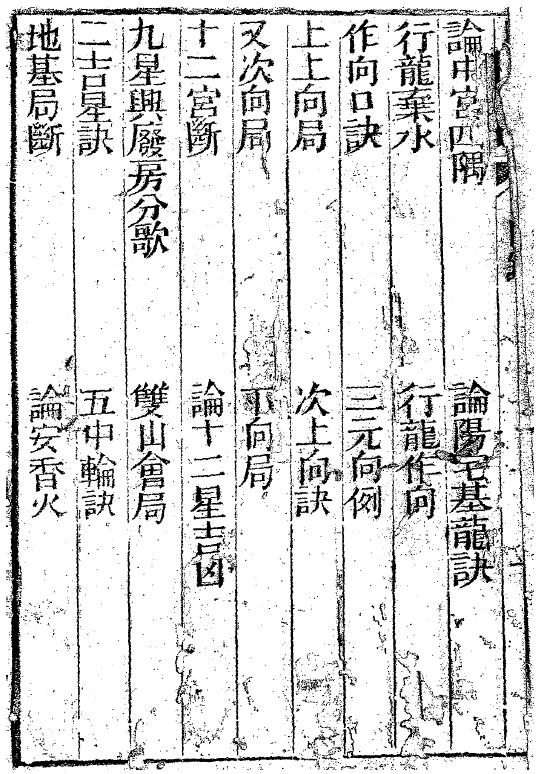 論中宮四隅 論陽宅基龍訣
行龍棄水 行龍作向
作向口訣 三元向例
上上向局 次上向訣
又次向局 下向局
十二宮斷 論十二星吉凶
九星興廢房分歌 雙山會局
二吉星訣 五中輪訣
地基局斷 論安香火